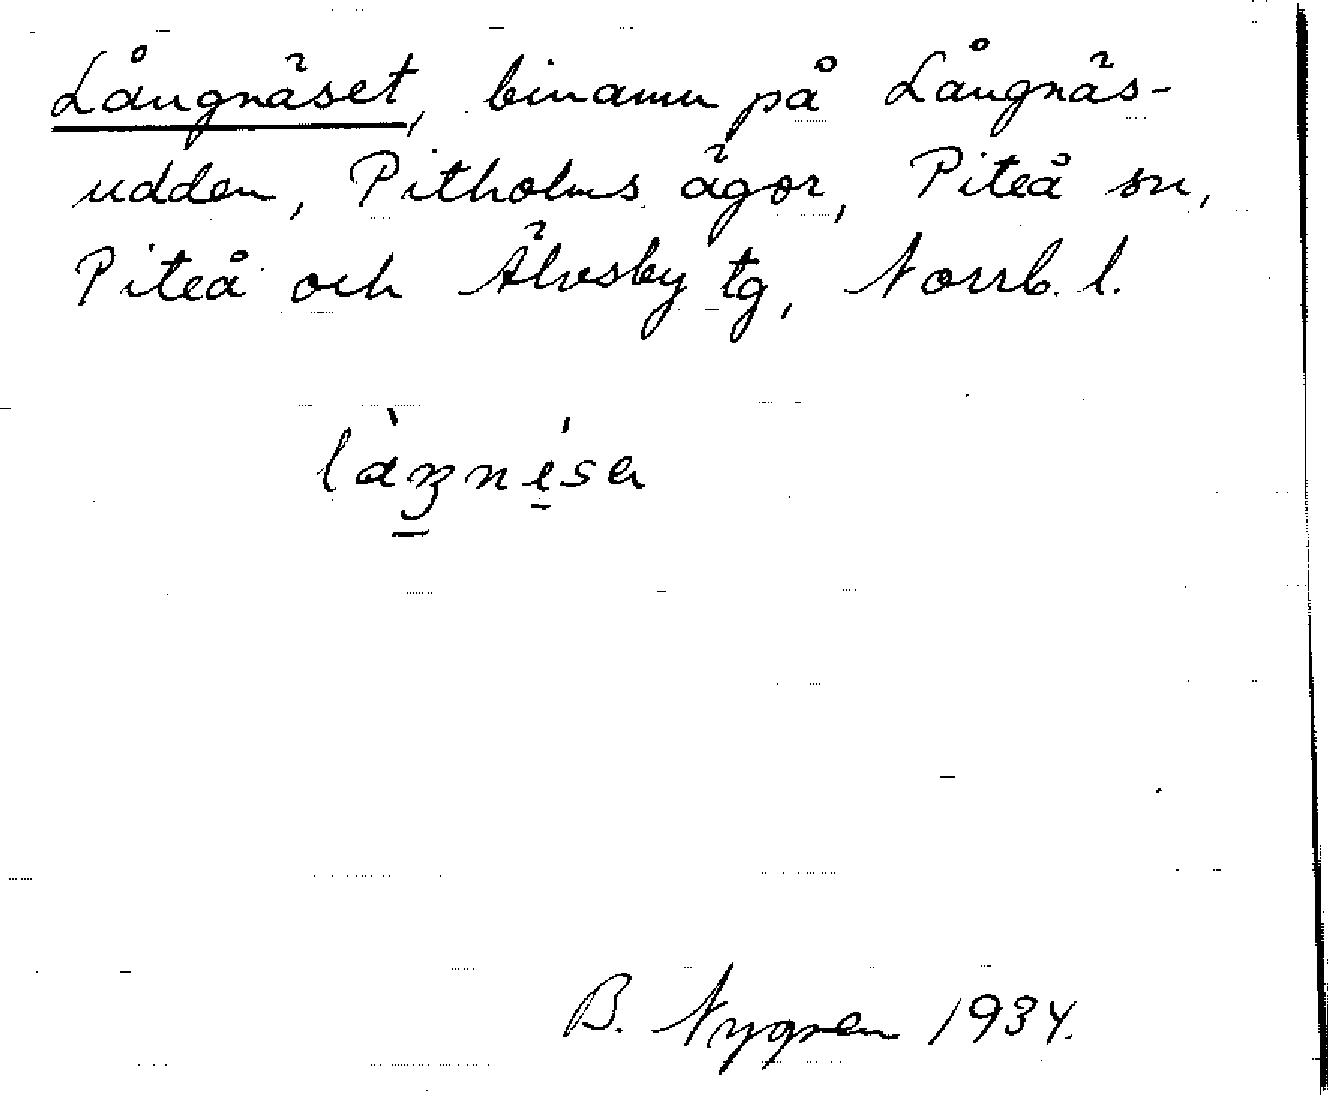 Långnäset, binamn på Långnäs-
udden, Pitholms ägor, Piteå sn,
Piteå och Älvsby tg, Norrb. l.
B. Nygren 1934.